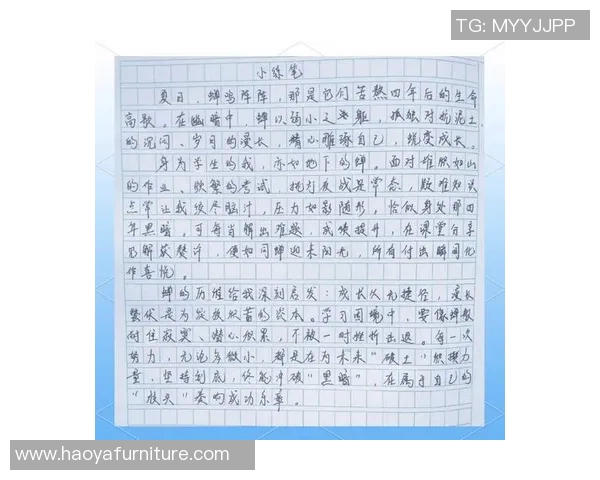 TG: MYYJJPP
小练笔
夏日,蝉鸣阵阵,那是它们苦熬四年后的生命
高歌。在幽暗中,蝉以弱小之躯,孤独对抗泥土
的沉闷、岁月的漫长,精心雕琢自己,蜕变成长。
身为学生的我,亦如地下的蝉。面对堆积如山
的作业、频繁的考试,挑灯夜战是常态,疑难知识
点常让我绞尽脑汁,压力如影随形,恰似身处那四
年黑暗。可每当解出难题,成绩提升,在课堂分享
见解获赞许,便如同蝉迎来阳光,所有付出瞬间化
作喜悦。
蝉的历程给我深刻启发:成长从无捷径,漫长
蛰伏是为绽放积蓄的资本。学习困境中,要像蝉般
耐住寂寞、潜心积累,不被一时挫折击退。每一次
努力,无论多微小,都是在为未来"破土"积攒力
量,坚持到底,终能冲破"黑暗",在属于自己的
"枝头"奏响成功乐章。
www.haoyafurniture.com